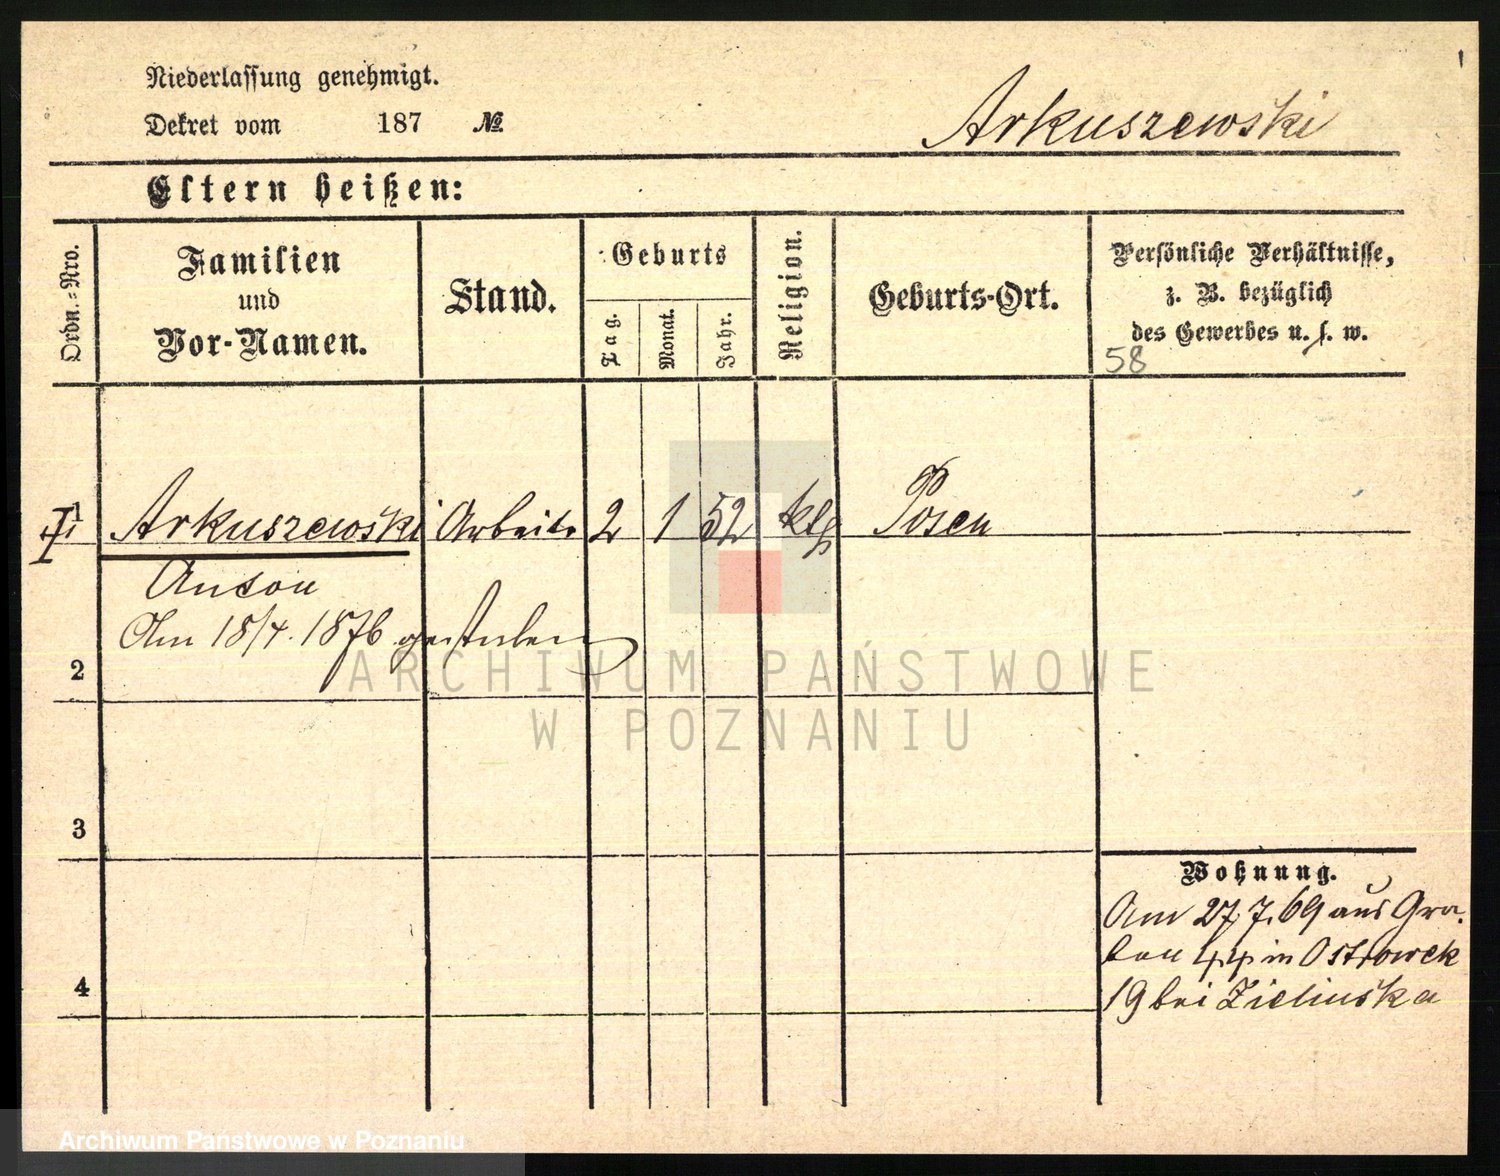 Niederlassung genehmigt.
Dekret vom 187 №
Arkuszewski
Eltern heißen:
Ordn.=Nro.
Familien und Vor-Namen.
Stand.
Geburts
Tag.
Monat.
Jahr.
Religion.
Geburts-Ort.
Persönliche Verhältnisse,
z. B. bezüglich
des Gewerbes u. s. w.
58
1 Arkuszewski Arbeiter 2 1 52 ktl Posen
Anton
Am 18/4. 1876 gestorben
2
3
4
Wohnung.
Am 27.7.69 aus Gra-
ben 44 in Ostrowek
19 bei Zielinska
ARCHIWUM PAŃSTWOWE
W POZNANIU
Archiwum Państwowe w Poznaniu